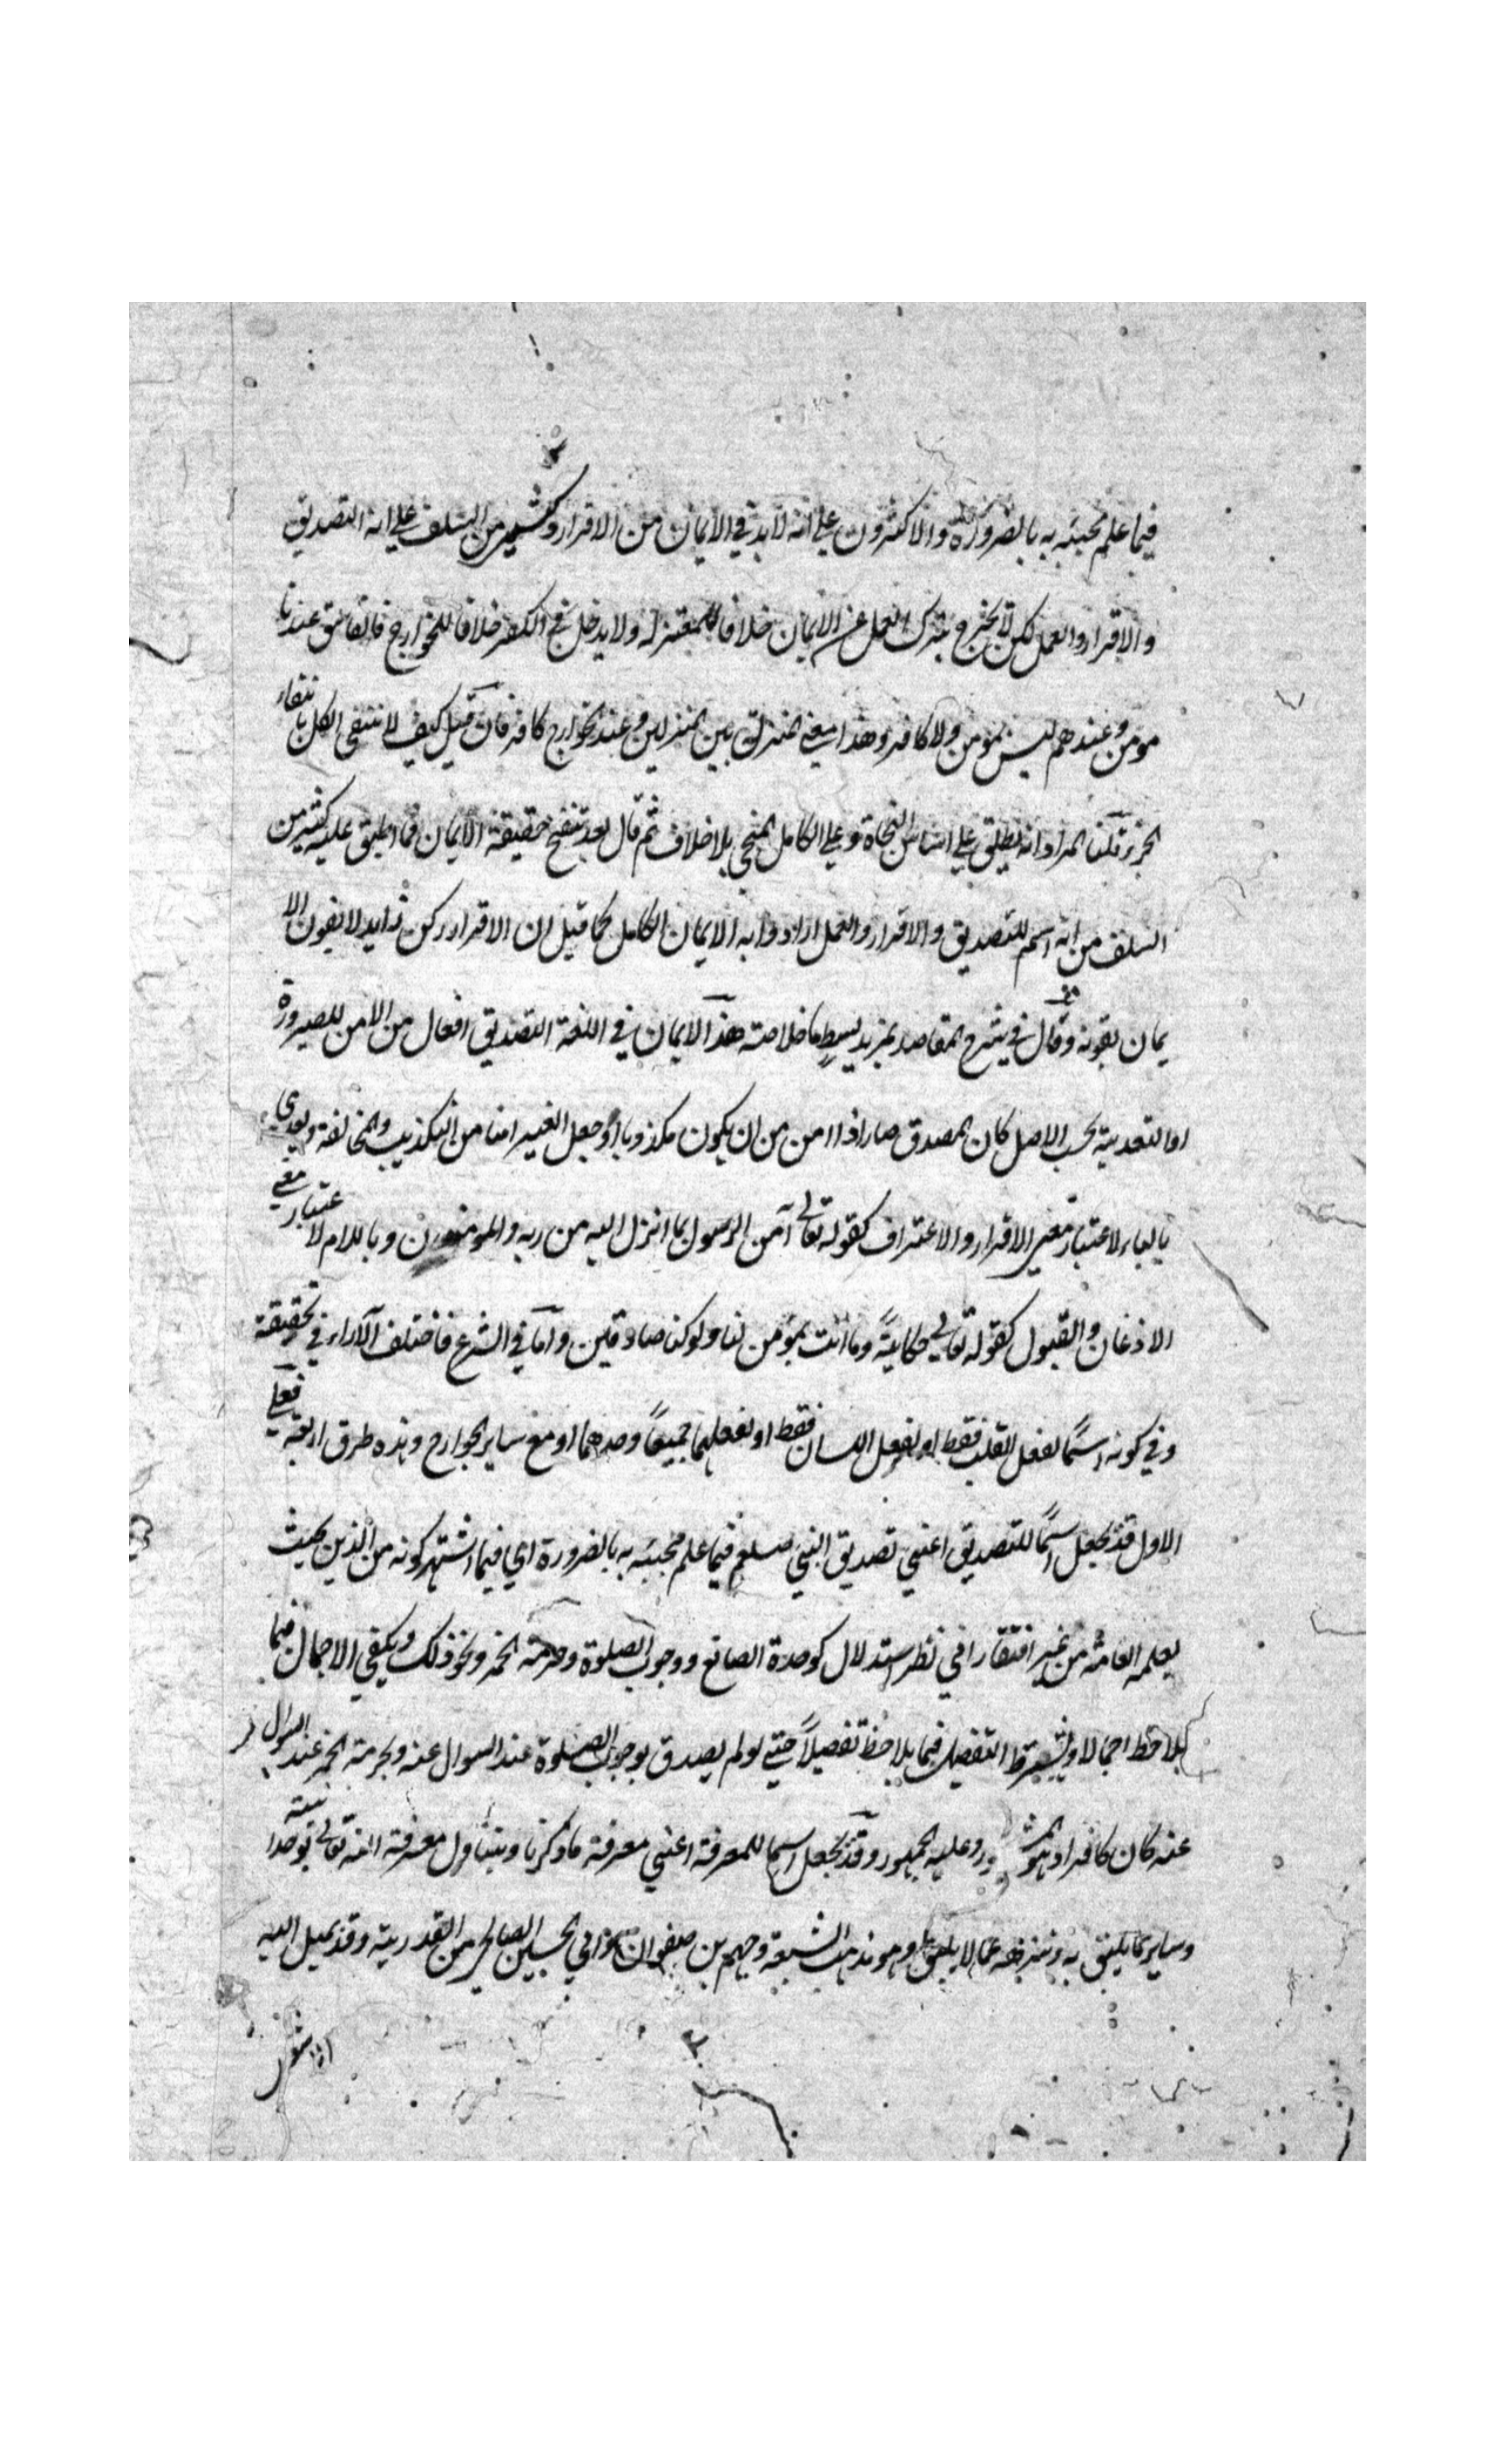 فيما علم مجيئه به بالضرورة والاكثرون على انه لا بد في الايمان من الاقرار وكثير من السلف على انه التصديق
والاقرار والعمل لكن لا يخرج بترك العمل عن الايمان خلافا للمعتزلة ولا يدخل في الكفر خلافا للخوارج فالفاسق عندنا
مومن وعندهم ليس بمومن ولا كافر وهذا معنى المنزلة بين المنزلين وعند الخوارج كافر فان قيل كيف لا ينتفى الكل بانتفاء
الجزء قلنا المراد انه يطلق على اساس النجاة وعلى الكامل المنجي بلا خلاف ثم قال بعد تنقيح حقيقة الايمان فما اطبق عليه كثير من
السلف من انه اسم للتصديق والاقرار والعمل ارادوا به الايمان الكامل كما قيل ان الاقرار ركن زايد لا يفوت الا
يمان بفوته وقال في شرح المقاصد بمزيد بسيط ما خلاصته هذا الايمان في اللغة التصديق افعال من الامن للصيرورة
او التعدية بحسب الاصل كان المصدق صار ذا امن من ان يكون مكذوبا او جعل الغير امنا من التكذيب والمخالفة ويعدى
بالباء لاعتبار معنى الاقرار والاعتراف كقوله تعالى آمن الرسول بما انزل اليه من ربه والمومنون وباللام لاعتبار معنى
الاذعان والقبول كقوله تعالى حكاية وما انت بمؤمن لنا ولو كنا صادقين واما في الشرع فاختلف الآراء في تحقيقه
وفي كونه اسمًا لفعل القلب فقط او لفعل اللسان فقط او لفعلهما جميعًا وحدهما او مع ساير الجوارح وهذه طرق اربعة فعلى
الاول قد يجعل اسمًا للتصديق اعني تصديق النبي صلعم فيما علم مجيئه به بالضرورة اي فيما اشتهر كونه من الدين بحيث
يعلمه العامة من غير افتقار الى نظر استدلال كوحدة الصانع ووجوب الصلوة وحرمة الخمر ونحو ذلك ويكفي الاجمال فيما
يلاحظ اجمالا ويشترط التفصيل فيما يلاحظ تفصيلاً حتى لو لم يصدق بوجوب الصلوة عند السوال عنه وبحرمة الخمر عند السوال
عنه كان كافرا وهو المشهور وعليه الجمهور وقد يجعل اسما للمعرفة اعني معرفة ما ذكرنا ويتناول معرفة الله تعالى بوحدانيته
وساير ما يليق به وتنزهه عما لا يليق به وهو مذهب الشيعة وجهم بن صفوان وابي الحسين الصالحي من القدرية وقد يميل اليه